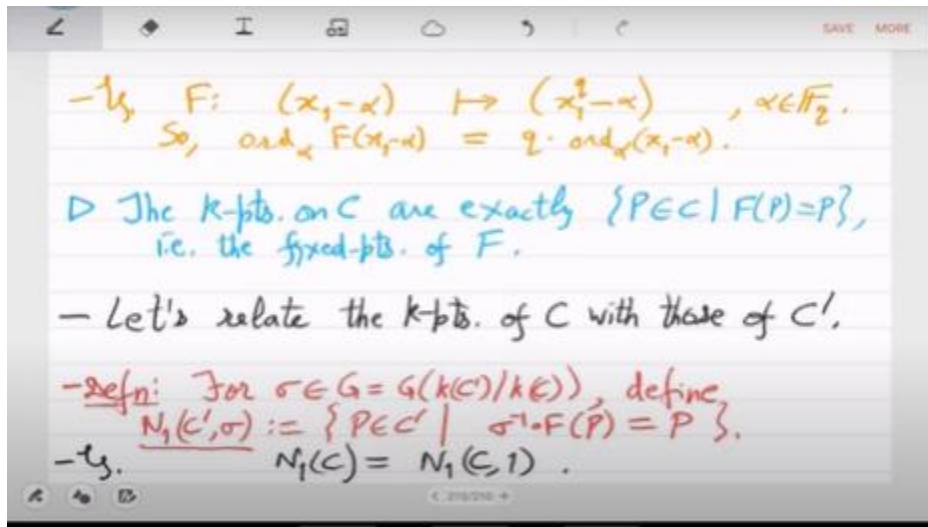 SAVE MORE
- Eg. F: (x₁-α) ↦ (x₁^q-α), α∈F_q.
So, ord_α F(x₁-α) = q·ord_α(x₁-α).
▷ The k-pts. on C are exactly {P∈C | F(P)=P},
i.e. the fixed-pts. of F.
- Let's relate the k-pts. of C with those of C'.
- Defn: For σ∈G = G(k(C')/k(C)), define
N₁(C',σ) := {P∈C' | σ⁻¹∘F(P) = P}.
- Eg. N₁(C) = N₁(C,1).